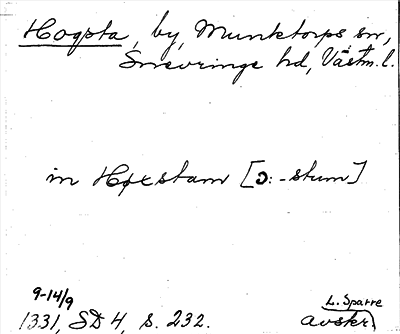 Hogsta, by, Munktorps sn,
Snevringe hd, Västm. l.
in Høxstam [ɔ: -stum]
9-14/9
1331, SD 4, s. 232.
L. Sparre
avskr.